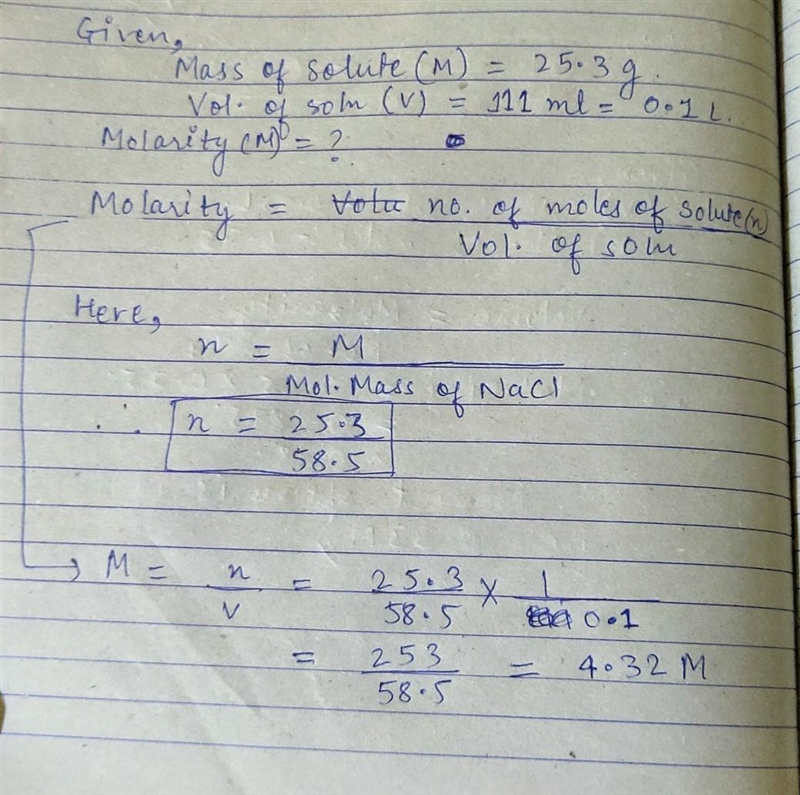 Given,
Mass of solute (M) = 25.3 g.
Vol. of soln (V) = 111 ml = 0.1 L.
Molarity (M) = ?
Molarity = no. of moles of solute (n)
Vol. of soln
Here,
n = M
Mol. Mass of NaCl
∴ n = 25.3
58.5
M = n = 25.3 × 1
V 58.5 0.1
= 253 = 4.32 M
58.5